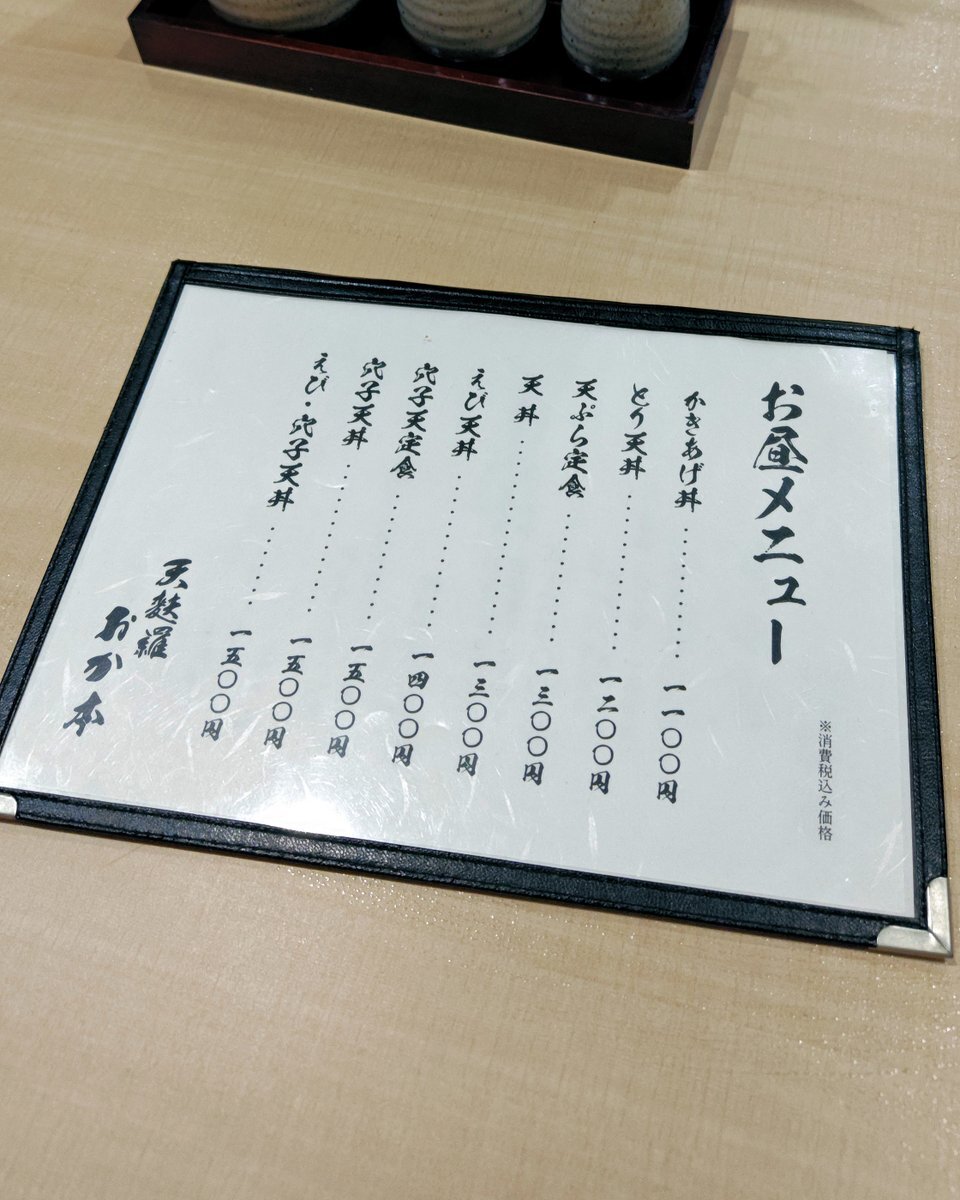 ※消費税込み価格
お昼メニュー
かきあげ丼………一一〇〇円
とり天丼…………一二〇〇円
天ぷら定食………一三〇〇円
天丼………………一三〇〇円
えび天丼…………一四〇〇円
穴子天定食………一五〇〇円
穴子天丼…………一五〇〇円
えび・穴子天丼……一五〇〇円
天麩羅
おか本